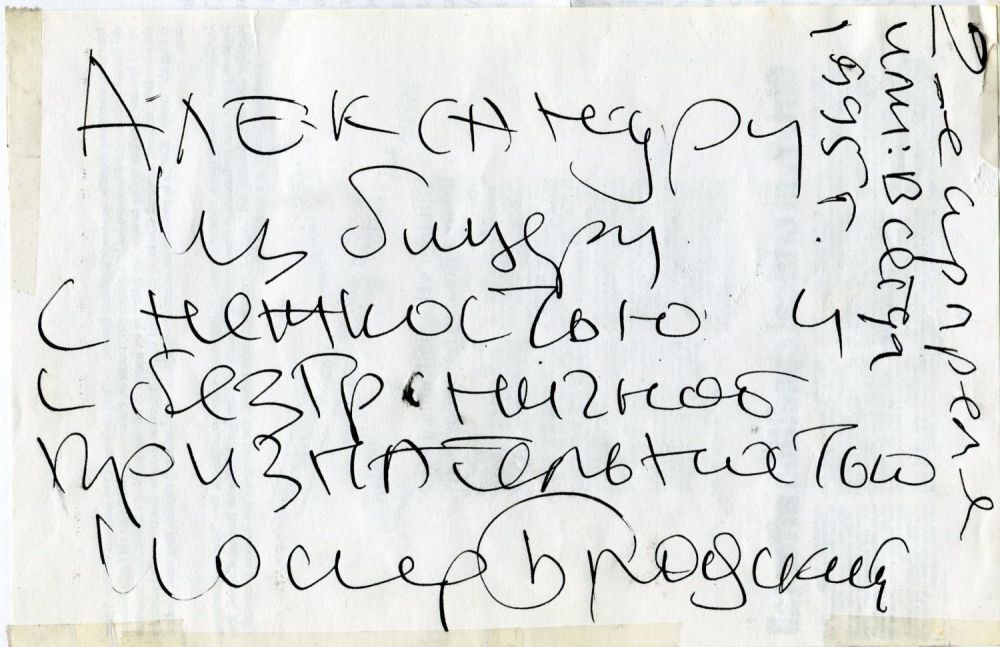 Александру
Избицеру
с нежностью и
с безграничной
признательностью
Иосиф Бродский
2-е апреля
или: Всегда
1995 г.